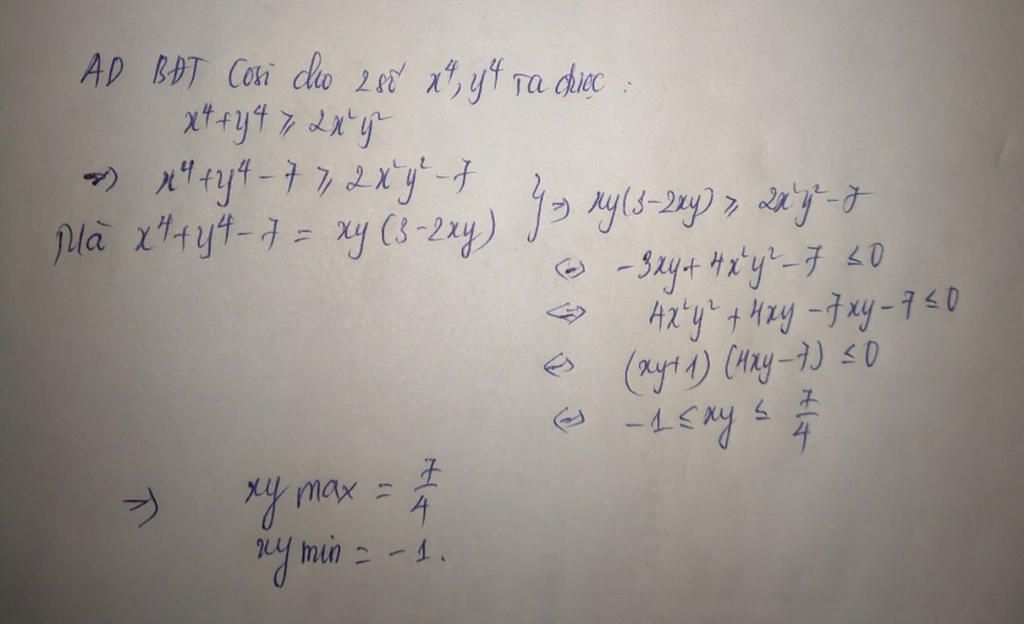 AD BĐT Cosi cho 2 số x⁴, y⁴ ta được :
x⁴+y⁴ ⩾ 2x²y²
=> x⁴+y⁴-7 ⩾ 2x²y²-7
Mà x⁴+y⁴-7 = xy(3-2xy)
} => xy(3-2xy) ⩾ 2x²y²-7
<=> -3xy+4x²y²-7 ≤0
<=> 4x²y²+4xy-7xy-7≤0
<=> (xy+1)(4xy-7) ≤0
<=> -1≤xy ≤ 7/4
=> xy max = 7/4
xy min = -1.